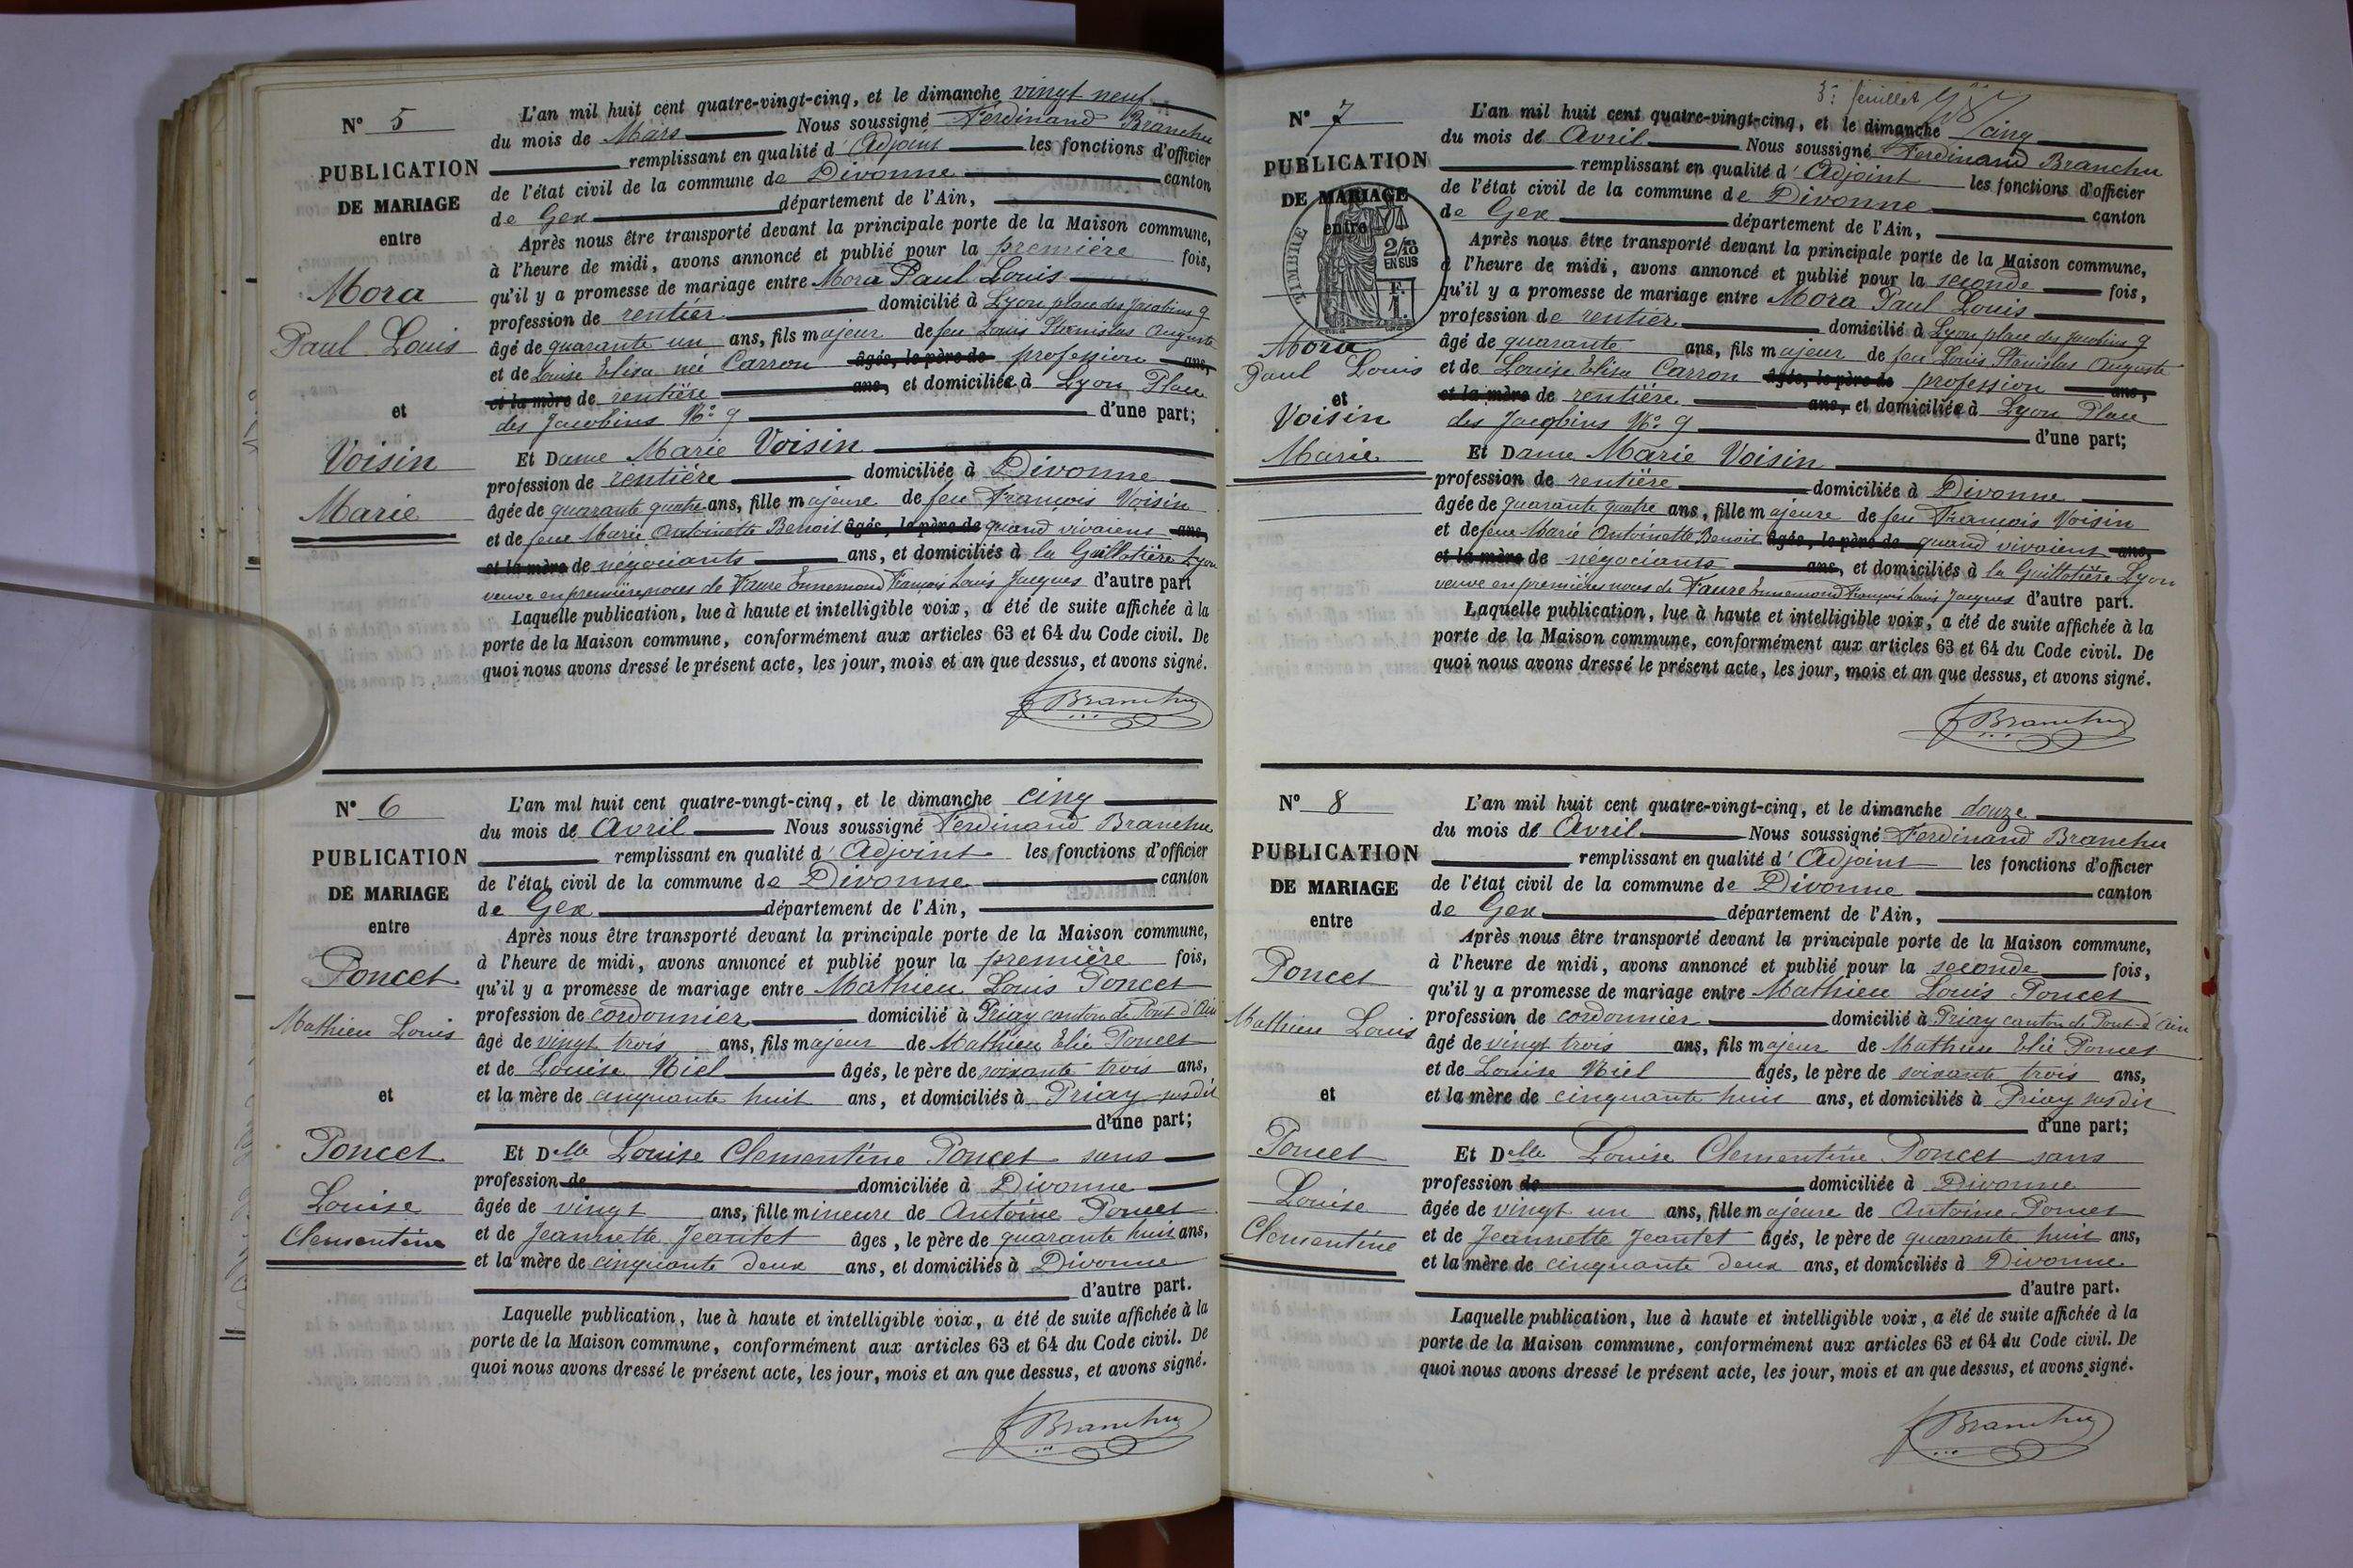 N° 5
PUBLICATION
DE MARIAGE
entre
Mora
Paul Louis
et
Voisin
Marie
L'an mil huit cent quatre-vingt-cinq, et le dimanche vingt neuf
du mois de Mars Nous soussigné Ferdinand Branchu
remplissant en qualité d'Adjoint les fonctions d'officier
de l'état civil de la commune de Divonne canton
de Gex département de l'Ain,
Après nous être transporté devant la principale porte de la Maison commune,
à l'heure de midi, avons annoncé et publié pour la première fois,
qu'il y a promesse de mariage entre Mora Paul Louis
profession de rentier domicilié à Lyon place des Jacobins 9
âgé de quarante un ans, fils majeur de feu Louis Stanislas Auguste
et de Louise Elisa née Carron âgés, le père de profession ans,
et la mère de rentière ans, et domiciliée à Lyon Place
des Jacobins N° 9 d'une part;
Et Dame Marie Voisin
profession de rentière domiciliée à Divonne
âgée de quarante quatre ans, fille majeure de feu François Voisin
et de feue Marie Antoinette Benoit âgés, le père de quand vivaient ans,
et la mère de négociants ans, et domiciliés à la Guillotière Lyon
veuve en premières noces de Faure Ennemond François Louis Jacques d'autre part
Laquelle publication, lue à haute et intelligible voix, a été de suite affichée à la
porte de la Maison commune, conformément aux articles 63 et 64 du Code civil. De
quoi nous avons dressé le présent acte, les jour, mois et an que dessus, et avons signé.
F Branchu
N° 6
PUBLICATION
DE MARIAGE
entre
Poncet
Mathieu Louis
et
Poncet
Louise
Clementine
L'an mil huit cent quatre-vingt-cinq, et le dimanche cinq
du mois de Avril Nous soussigné Ferdinand Branchu
remplissant en qualité d'Adjoint les fonctions d'officier
de l'état civil de la commune de Divonne canton
de Gex département de l'Ain,
Après nous être transporté devant la principale porte de la Maison commune,
à l'heure de midi, avons annoncé et publié pour la première fois,
qu'il y a promesse de mariage entre Mathieu Louis Poncet
profession de cordonnier domicilié à Priay canton de Pont d'Ain
âgé de vingt trois ans, fils majeur de Mathieu Elie Poncet
et de Louise Niel âgés, le père de soixante trois ans,
et la mère de cinquante huit ans, et domiciliés à Priay susdit
d'une part;
Et Delle Louise Clementine Poncet sans
profession de domiciliée à Divonne
âgée de vingt ans, fille mineure de Antoine Poncet
et de Jeannette Jeantet âges, le père de quarante huit ans,
et la mère de cinquante deux ans, et domiciliés à Divonne
d'autre part.
Laquelle publication, lue à haute et intelligible voix, a été de suite affichée à la
porte de la Maison commune, conformément aux articles 63 et 64 du Code civil. De
quoi nous avons dressé le présent acte, les jour, mois et an que dessus, et avons signé.
F Branchu
3e feuillet
N° 7
PUBLICATION
DE MARIAGE
entre
TIMBRE
2/10
EN SUS
F.
1.
Mora
Paul Louis
et
Voisin
Marie
L'an mil huit cent quatre-vingt-cinq, et le dimanche cinq
du mois de Avril Nous soussigné Ferdinand Branchu
remplissant en qualité d'Adjoint les fonctions d'officier
de l'état civil de la commune de Divonne canton
de Gex département de l'Ain,
Après nous être transporté devant la principale porte de la Maison commune,
à l'heure de midi, avons annoncé et publié pour la seconde fois,
qu'il y a promesse de mariage entre Mora Paul Louis
profession de rentier domicilié à Lyon place des Jacobins 9
âgé de quarante ans, fils majeur de feu Louis Stanislas Auguste
et de Louise Elisa Carron âgés, le père de profession ans,
et la mère de rentière ans, et domiciliée à Lyon Place
des Jacobins N° 9 d'une part;
Et Dame Marie Voisin
profession de rentière domiciliée à Divonne
âgée de quarante quatre ans, fille majeure de feu François Voisin
et de feue Marie Antoinette Benoit âgés, le père de quand vivaient ans,
et la mère de négociants ans, et domiciliés à la Guillotière Lyon
veuve en premières noces de Faure Ennemond François Louis Jacques d'autre part.
Laquelle publication, lue à haute et intelligible voix, a été de suite affichée à la
porte de la Maison commune, conformément aux articles 63 et 64 du Code civil. De
quoi nous avons dressé le présent acte, les jour, mois et an que dessus, et avons signé.
F Branchu
N° 8
PUBLICATION
DE MARIAGE
entre
Poncet
Mathieu Louis
et
Poncet
Louise
Clementine
L'an mil huit cent quatre-vingt-cinq, et le dimanche douze
du mois de Avril Nous soussigné Ferdinand Branchu
remplissant en qualité d'Adjoint les fonctions d'officier
de l'état civil de la commune de Divonne canton
de Gex département de l'Ain,
Après nous être transporté devant la principale porte de la Maison commune,
à l'heure de midi, avons annoncé et publié pour la seconde fois,
qu'il y a promesse de mariage entre Mathieu Louis Poncet
profession de cordonnier domicilié à Priay canton de Pont-d'Ain
âgé de vingt trois ans, fils majeur de Mathieu Elie Poncet
et de Louise Niel âgés, le père de soixante trois ans,
et la mère de cinquante huit ans, et domiciliés à Priay susdit
d'une part;
Et Delle Louise Clementine Poncet sans
profession de domiciliée à Divonne
âgée de vingt un ans, fille majeure de Antoine Poncet
et de Jeannette Jeantet âgés, le père de quarante huit ans,
et la mère de cinquante deux ans, et domiciliés à Divonne
d'autre part.
Laquelle publication, lue à haute et intelligible voix, a été de suite affichée à la
porte de la Maison commune, conformément aux articles 63 et 64 du Code civil. De
quoi nous avons dressé le présent acte, les jour, mois et an que dessus, et avons signé.
F Branchu